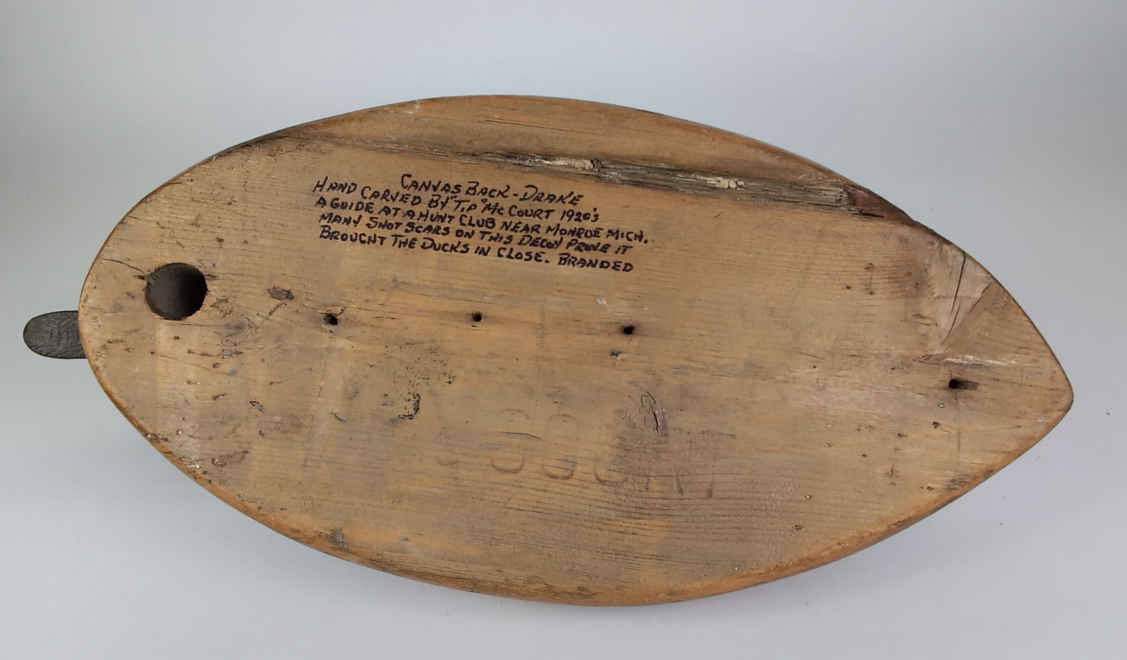 CANVAS BACK - DRAKE
HAND CARVED BY "T.P" Mc COURT 1920's
A GUIDE AT A HUNT CLUB NEAR MONROE MICH.
MANY SHOT SCARS ON THIS DECOY PROVE IT
BROUGHT THE DUCKS IN CLOSE. BRANDED